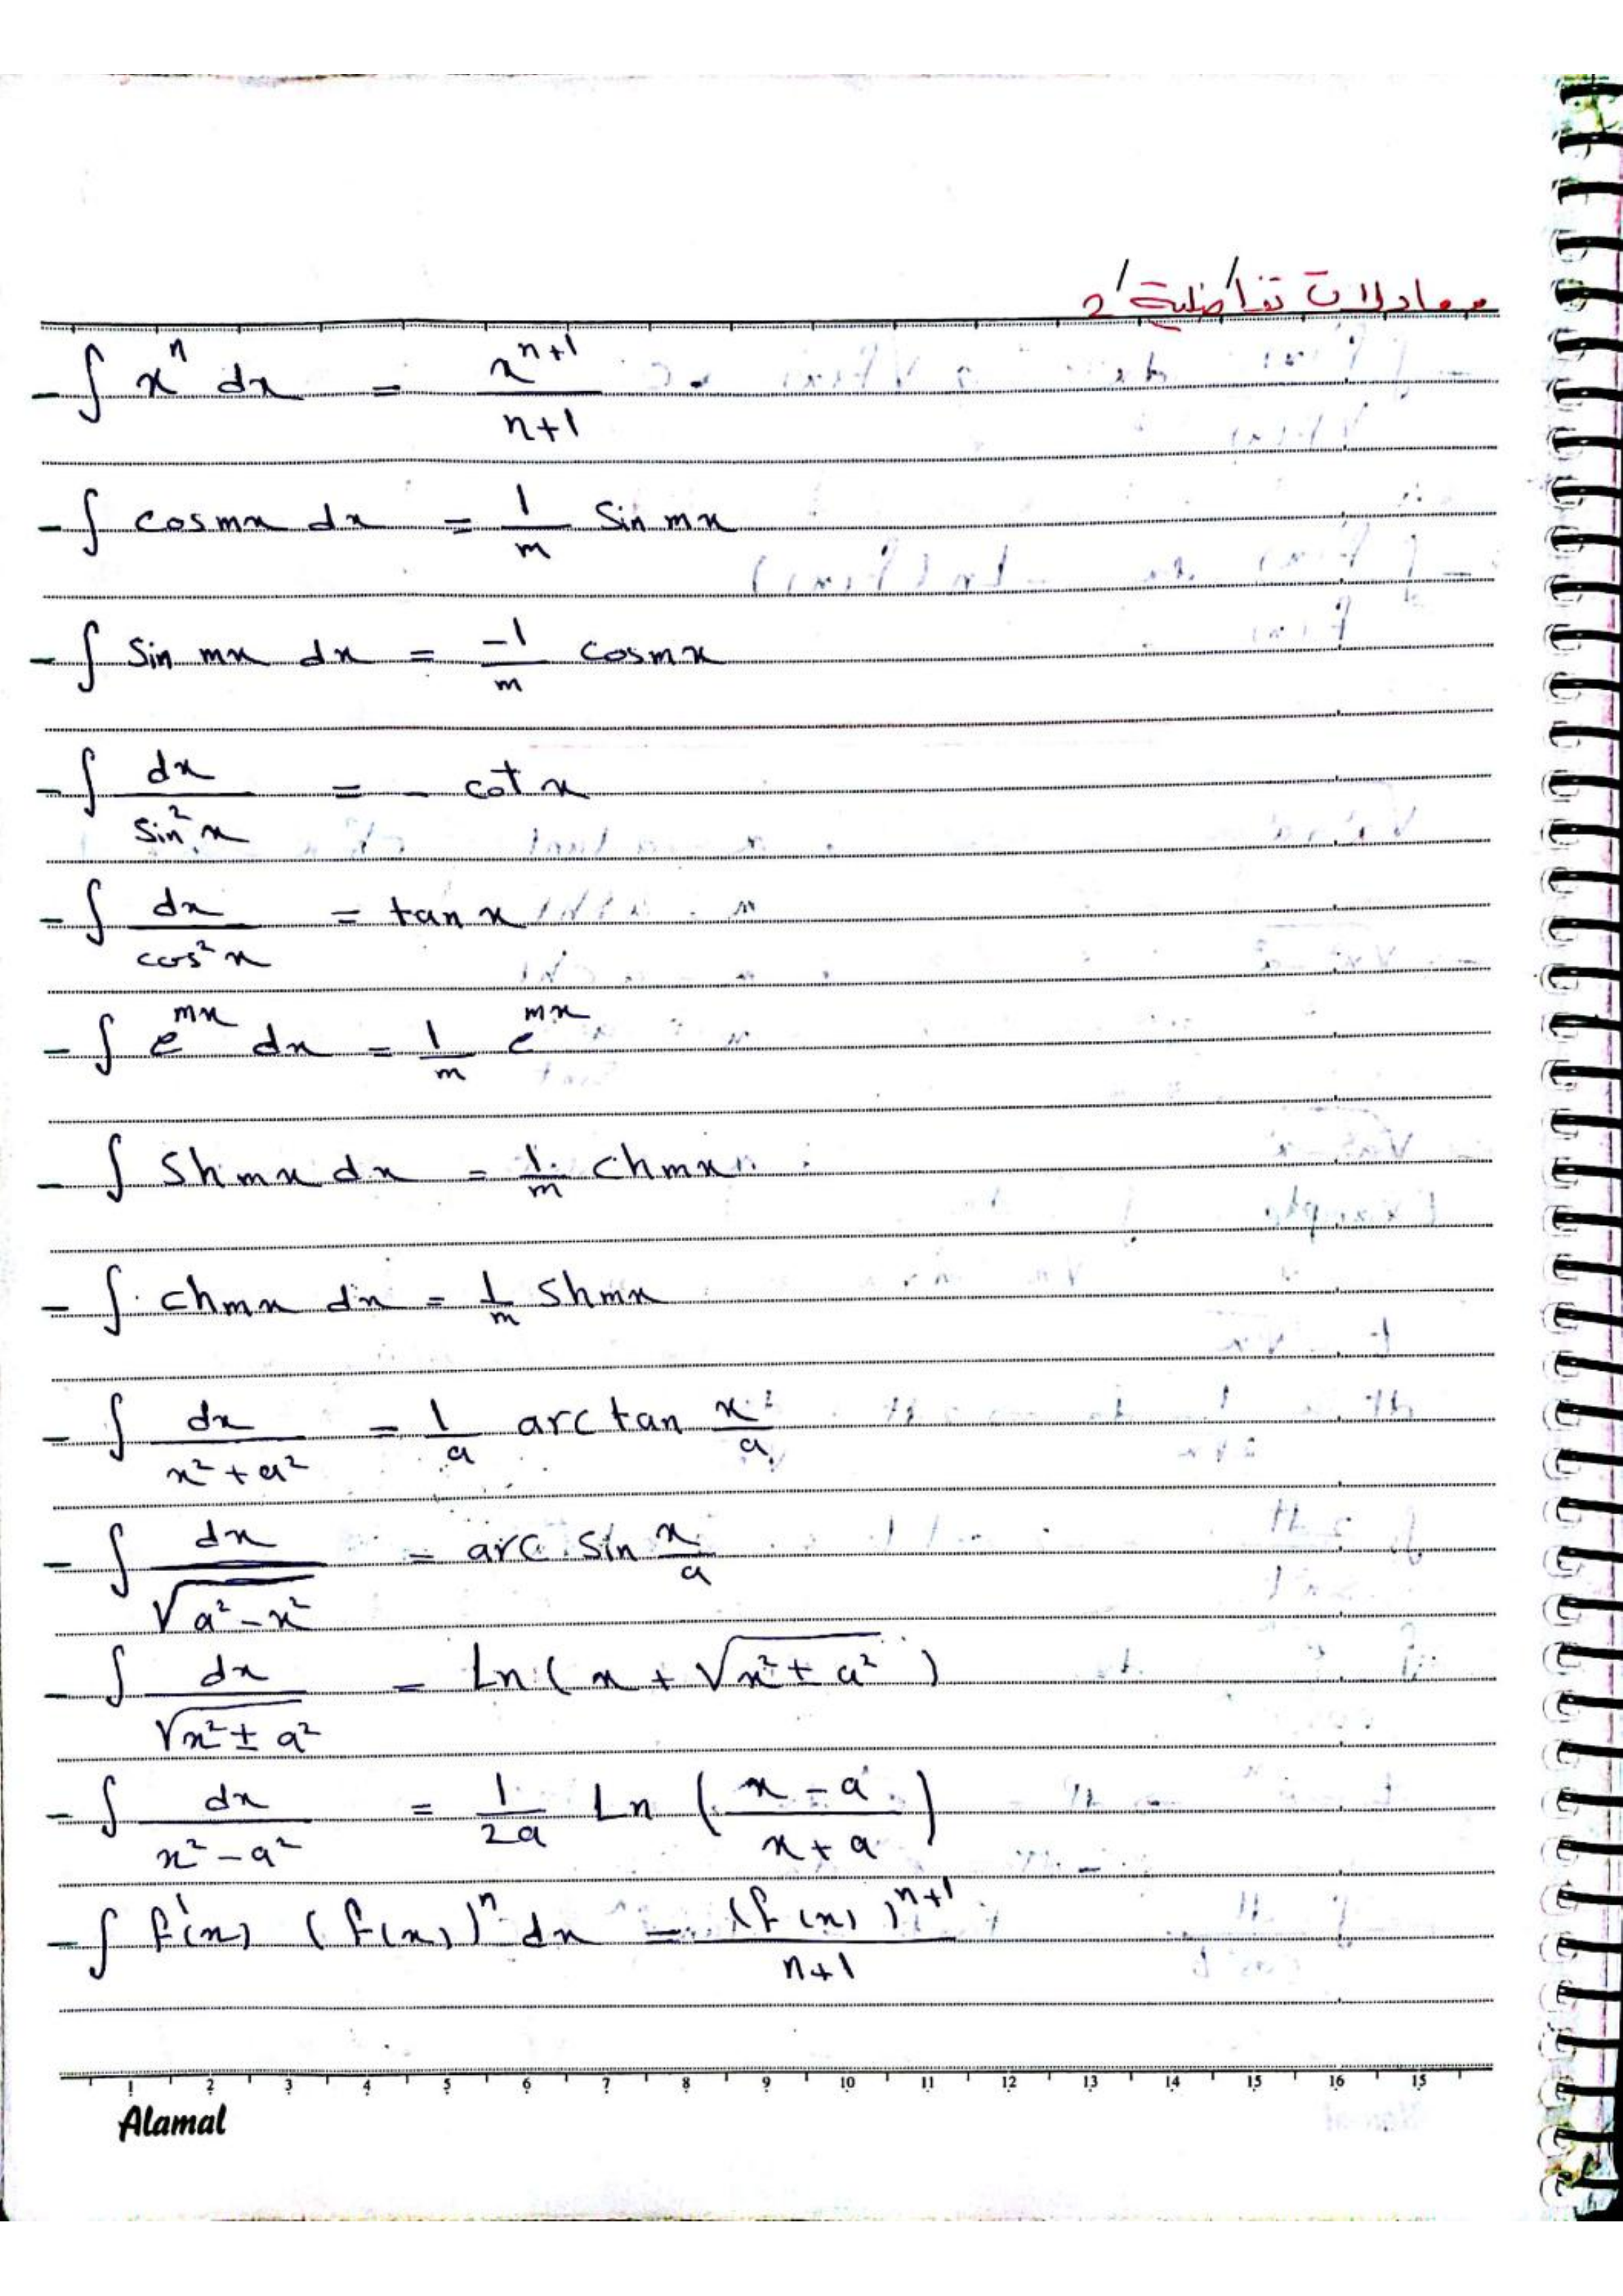 معادلات تفاضلية /2/
- ∫ x^n dx = x^(n+1) / (n+1)
- ∫ cos mx dx = 1/m sin mx
- ∫ sin mx dx = -1/m cos mx
- ∫ dx / sin² x = - cot x
- ∫ dx / cos² x = tan x
- ∫ e^(mx) dx = 1/m e^(mx)
- ∫ sh mx dx = 1/m ch mx
- ∫ ch mx dx = 1/m sh mx
- ∫ dx / (x² + a²) = 1/a arc tan x/a
- ∫ dx / √(a² - x²) = arc sin x/a
- ∫ dx / √(x² ± a²) = Ln ( x + √(x² ± a²) )
- ∫ dx / (x² - a²) = 1/2a Ln ( (x - a) / (x + a) )
- ∫ f'(x) (f(x))^n dx = (f(x))^(n+1) / (n+1)
1 2 3 4 5 6 7 8 9 10 11 12 13 14 15 16 15
Alamal